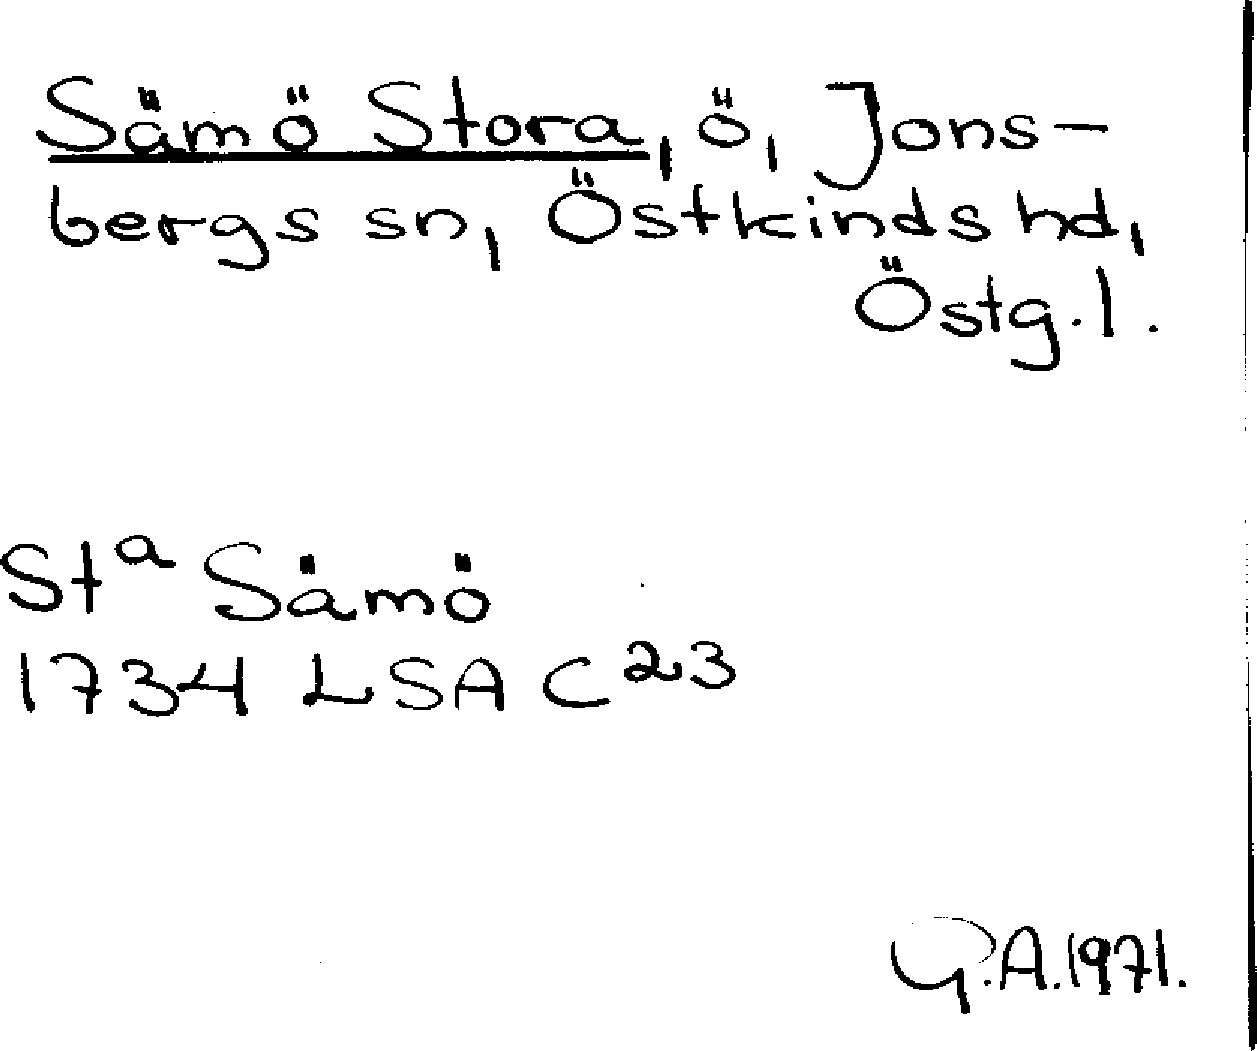 Sämö Stora, ö, Jons-
bergs sn, Östkinds hd,
Östg.l.
Sta Sämö
1734 LSA C23
G.A.1971.